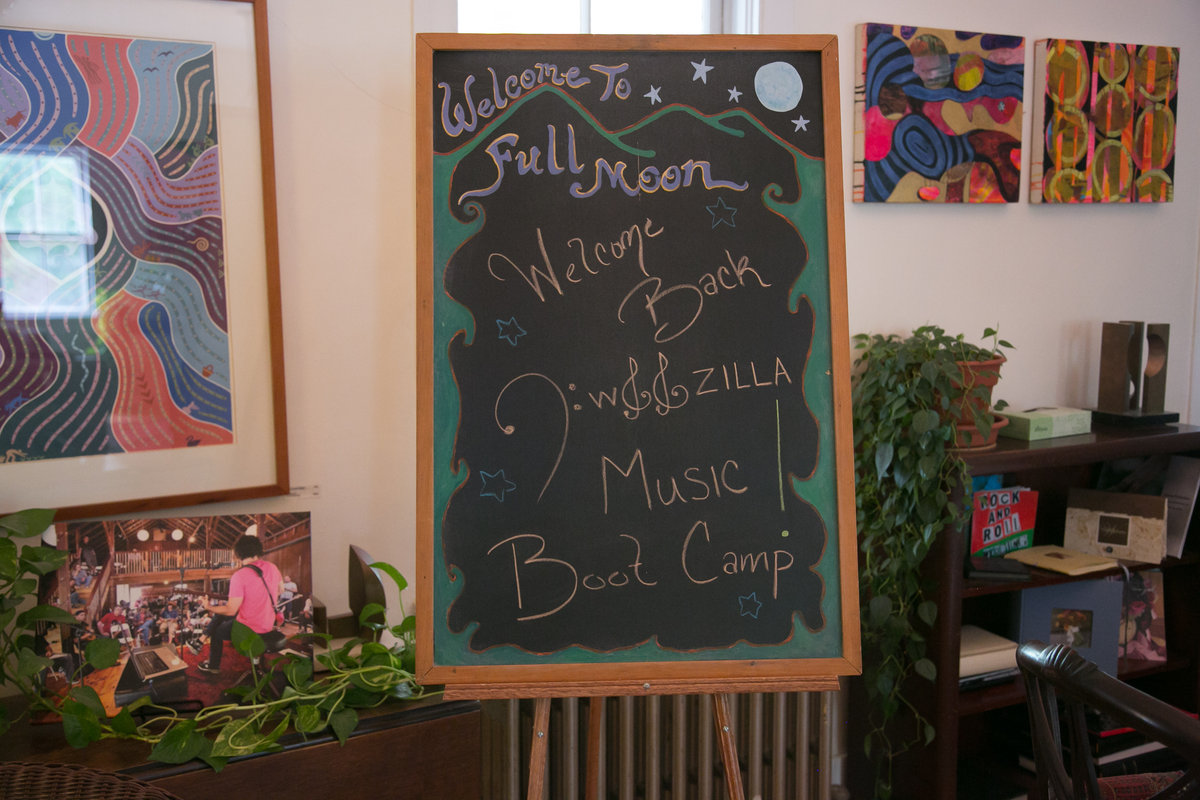 Welcome To
Full Moon
Welcome
Back
𝄢w𝄞𝄞ZILLA
Music
Boot Camp!
ROCK
AND
ROLL